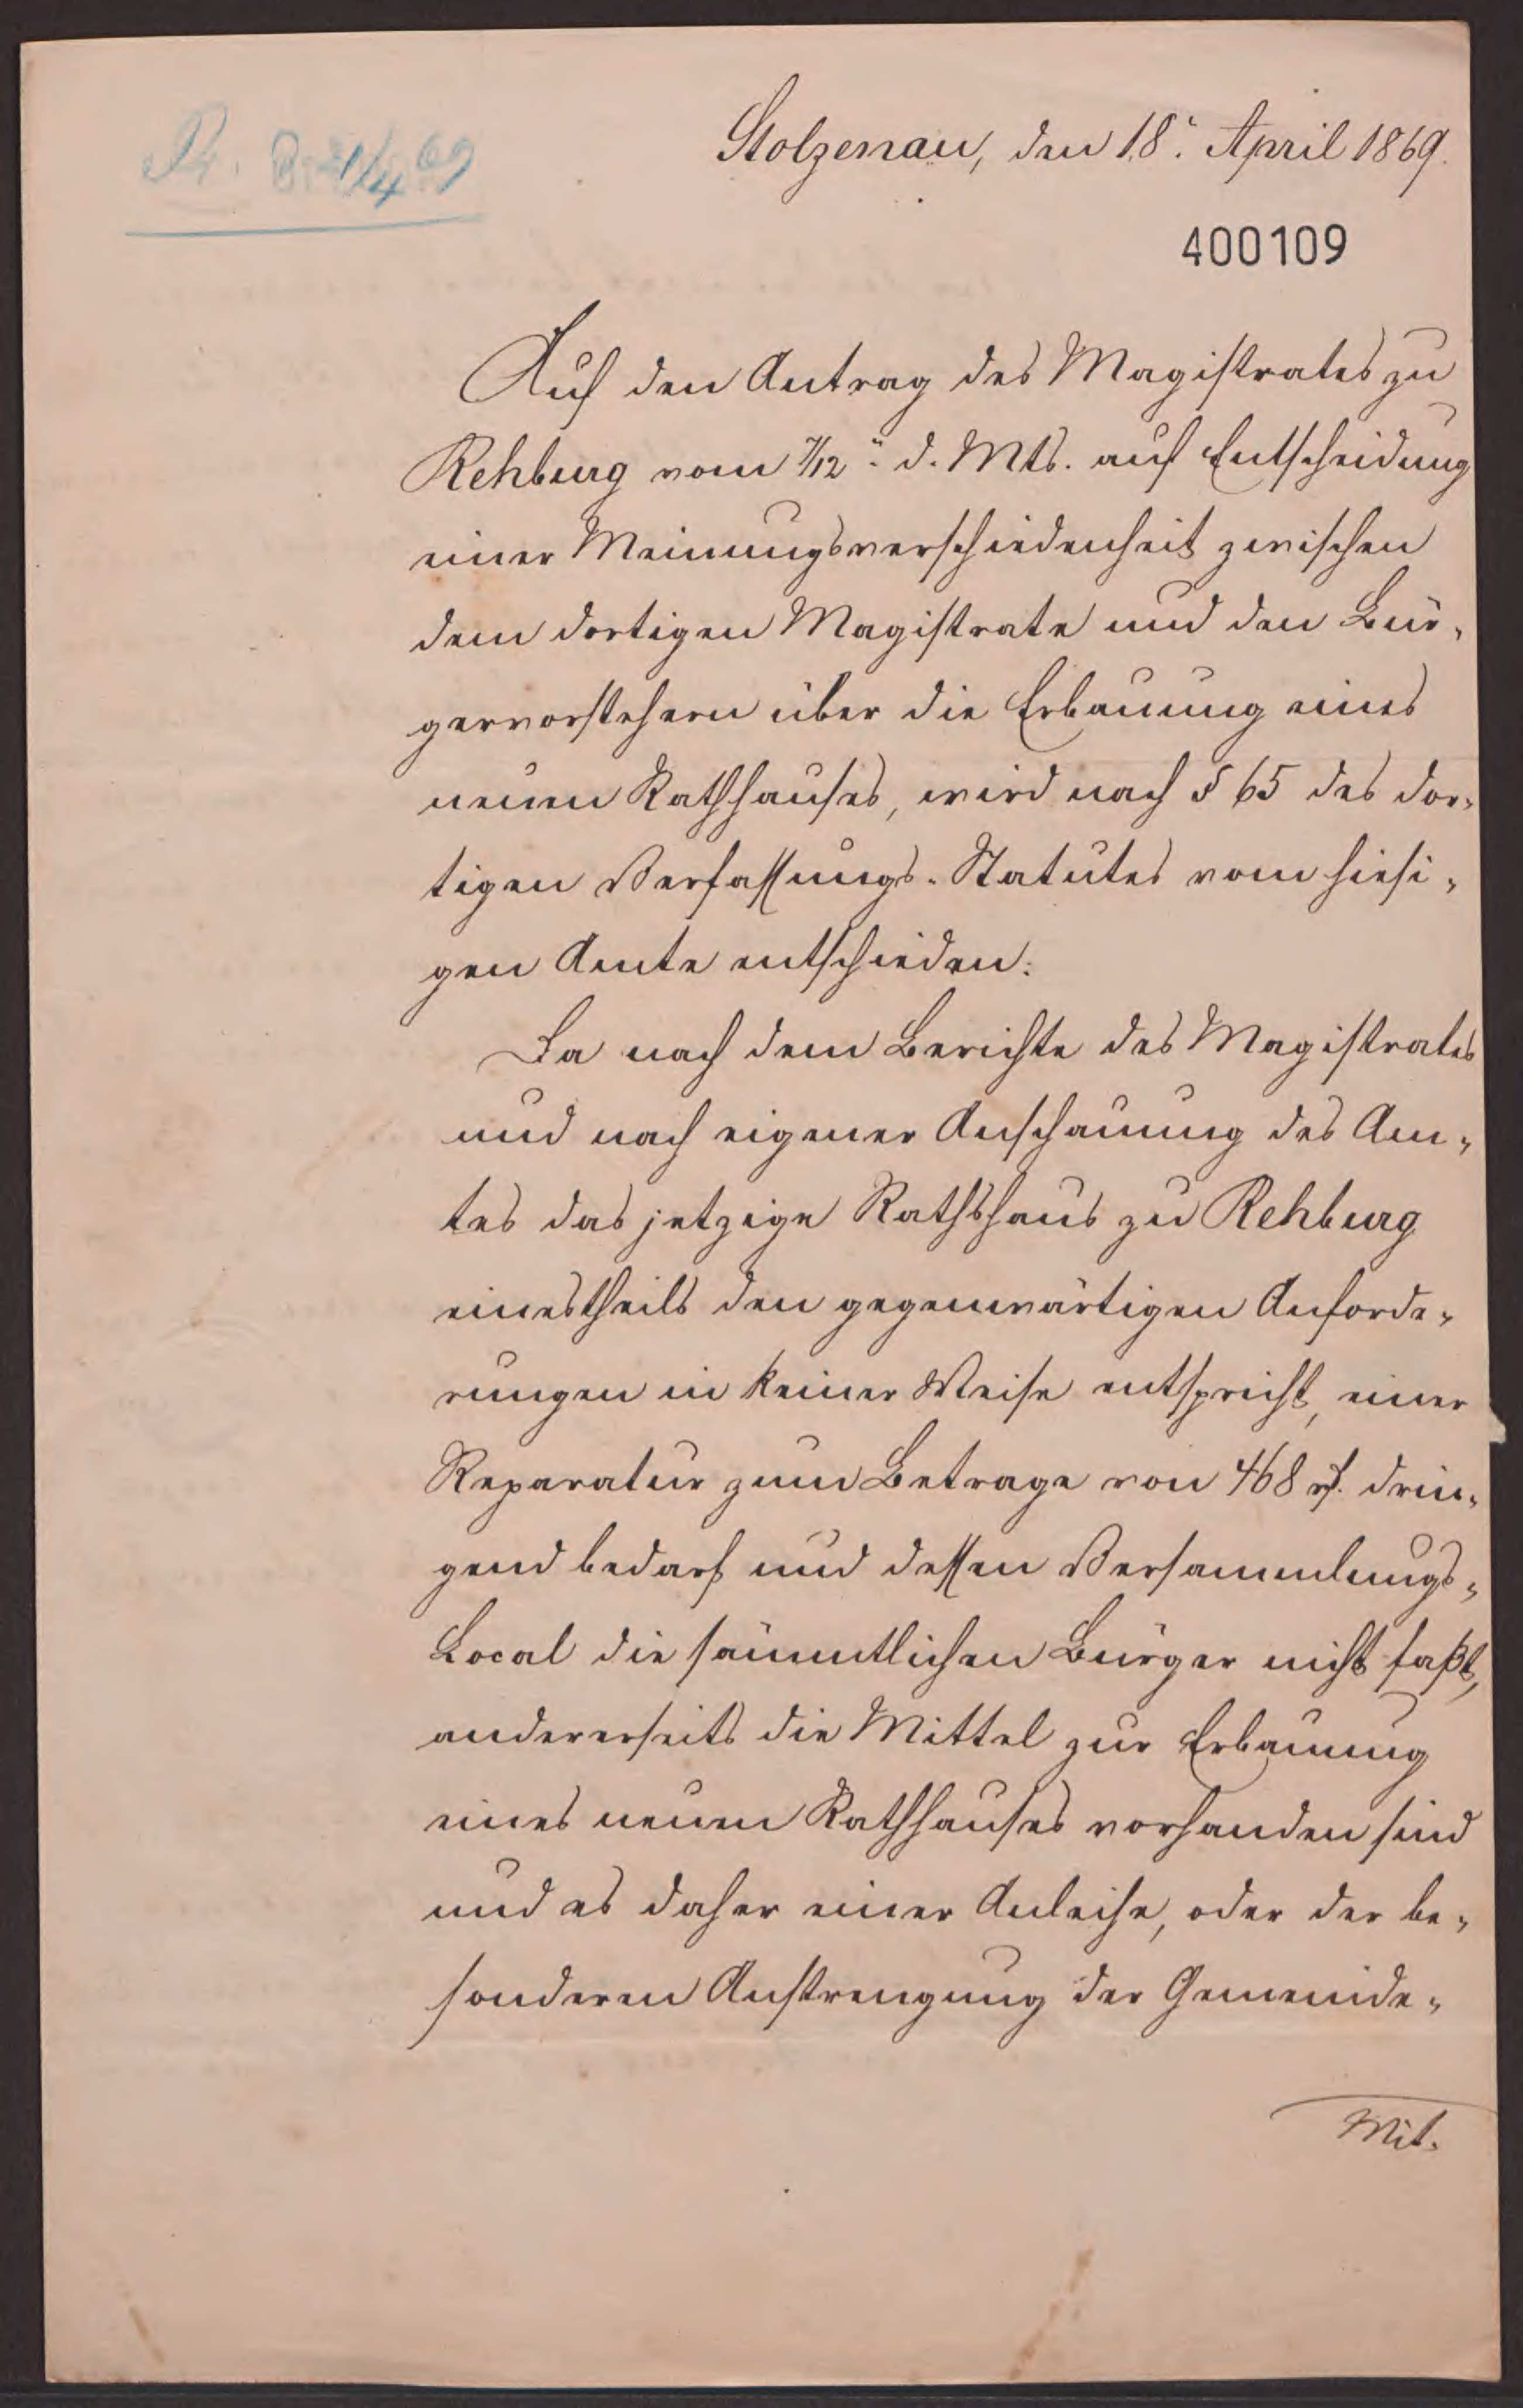 Stolzenau, den 18. April 1869.
Pr. 21/4 69
400109
Auf den Antrag des Magistrates zu
Rehburg vom 7/12. d. Mts. auf Entscheidung
einer Meinungsverschiedenheit zwischen
dem dortigen Magistrate und den Bür-
gervorstehern über die Erbauung eines
neuen Rathhauses, wird nach § 65 des dor-
tigen Verfassungs-Statutes vom hiesi-
gen Amte entschieden:
Da nach dem Berichte des Magistrates
und nach eigener Anschauung des Am-
tes das jetzige Rathshaus zu Rehburg
einestheils den gegenwärtigen Anforde-
rungen in keiner Weise entspricht, einer
Reparatur zum Betrage von 468 rf. drin-
gend bedarf und dessen Versammlungs-
Local die sämmtlichen Bürger nicht faßt,
andererseits die Mittel zur Erbauung
eines neuen Rathhauses vorhanden sind
und es daher einer Anleihe, oder der be-
sonderen Anstrengung der Gemeinde-
Mit-